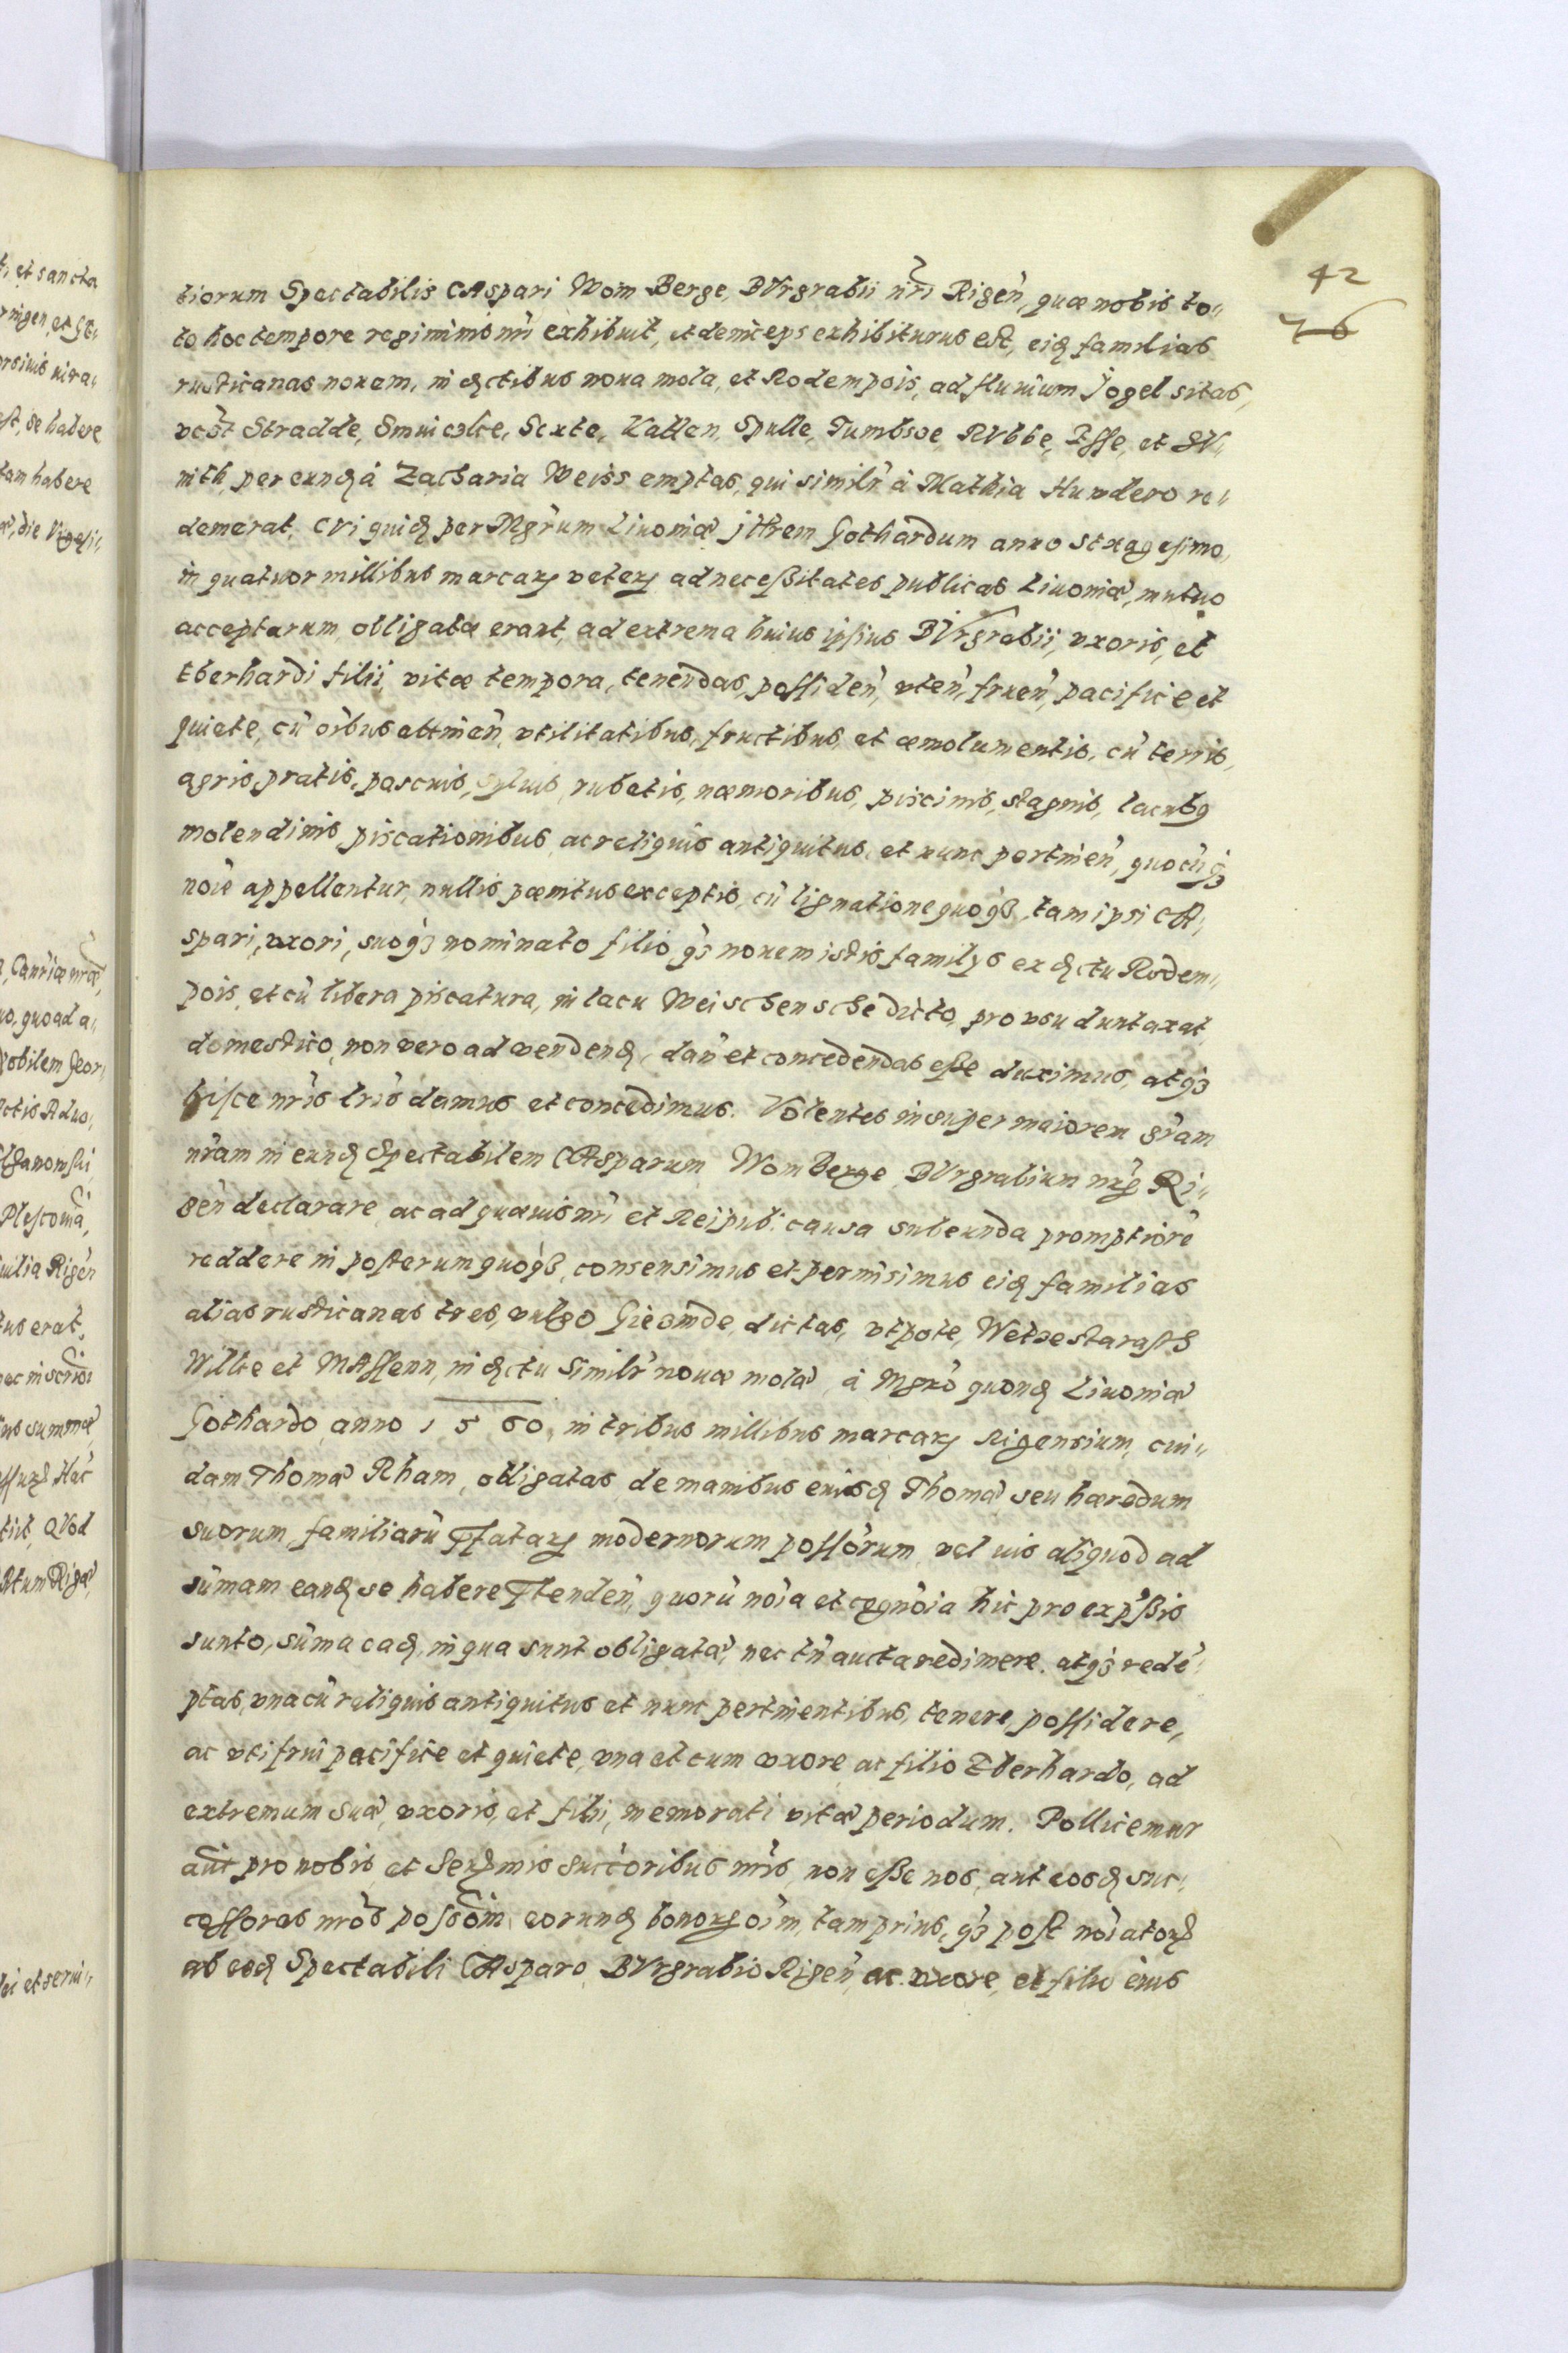 42
76
tiorum Spectabilis CAspari Wom Berge, BUrgrabii nr̃i Rigen̄, quæ nobis to„
to hoc tempore regiminis nr̃i exhibuit, et deinceps exhibiturus est, eiq familias
rusticanas nouem, in qctibus noua mola, et Rodempois, ad fluuium Jogel sitas,
vc̃t Stradde, Sexte, Katlen, Spulle, Tumbsoe, RUbbe, Esse, et
per eunq à Zacharia Weiss emptas, qui similr̃ à Mathia Hundero re„
demerat, CVi quiq per Mgr̃um Liuoniæ Illr̃em Gothardum anno sexagesimo,
in quatuor millibus marcarꝝ veterꝝ ad necessitates publicas Liuoniæ, mutuo
acceptarum, obligatæ erant, ad extrema huius ipsius BUrgrabii, vxoris, et
Eberhardi filii vitæ tempora, tenendas, possiden̄, vten̄, fruen̄, pacifice et
quiete, cū oībus attinen̄, vtilitatibus, fructibus et æmolumentis, cū terris,
agris, pratis, pascuis, syluis, rubetis, næmoribus, piscinis, stagnis, lacubꝫ
molendinis, piscationibus, ac reliquis antiquitus, et nunc pertinen̄, quocūqꝫ
noīe appellentur, nullis pænitus exceptis, cū lignatione quoqꝫ, tam ipsi CA„
spari, vxori, suoqꝫ nominato filio, qꝫ nouem istis familys ex qctu Rodem„
pois, et cū libera piscatura, in lacu Weischensche dicto, pro vsu duntaxat
domestico, non vero ad vendenq, dan̄ et concedendas esse duximus, atqꝫ
hisce nr̃is lr̃is damus et concedimus. Volentes insuper maiorem gr̃am
nr̃am in eunq Spectabilem CAsparum Wom Berge BUrgrabium nrꝝ Ri„
gen̄ declarare, ac ad quæuis nr̃i et Reipub: causa subeunda promptiorē
reddere in posterum quoqꝫ, consensimus et permisimus eiq familias
alias rusticanas tres, vulgo Giesinde, dictas, vtpote, Wetoestarasts
Wilke et MAssenn, in qctu similr̃ nouæ molæ, à Mgr̃o quonq Liuoniæ
Gothardo, anno 1560, in tribus millibus marcarꝝ Rigensium, cui„
dam Thomæ Rham, obligatas, de manibus eiusq Thomæ seu hæredum
suorum, familiarū p̄fatarꝝ modernorum poss̃orum, vel uis aliquod ad
sūmam eanq se habere p̄tenden̄, quorū noīa et cognoīa hic pro exp̃ssis
sunto, sūma eaq, in qua sunt obligatæ, nec tn̄ aucta redimere, atqꝫ redē„
ptas, vna cū reliquis antiquitus et nunc pertinentibus, tenere, possidere,
ac vti frui pacifice et quiete, vna et cum vxore, ac filio Eberhardo, ad
extremum suæ, vxoris, et filii, memorati vitæ periodum. Pollicemur
aūt pro nobis, et Serꝝmis succ̃oribus nr̃is, non esse nos, aut eosq suc„
cessores nr̃os eorunq bonorꝝ oīm, tam prius, qꝫ post noīatorꝝ
ab eoq Spectabili CAsparo, BUrgrabio Rigen̄, ac vxore, et filio eius